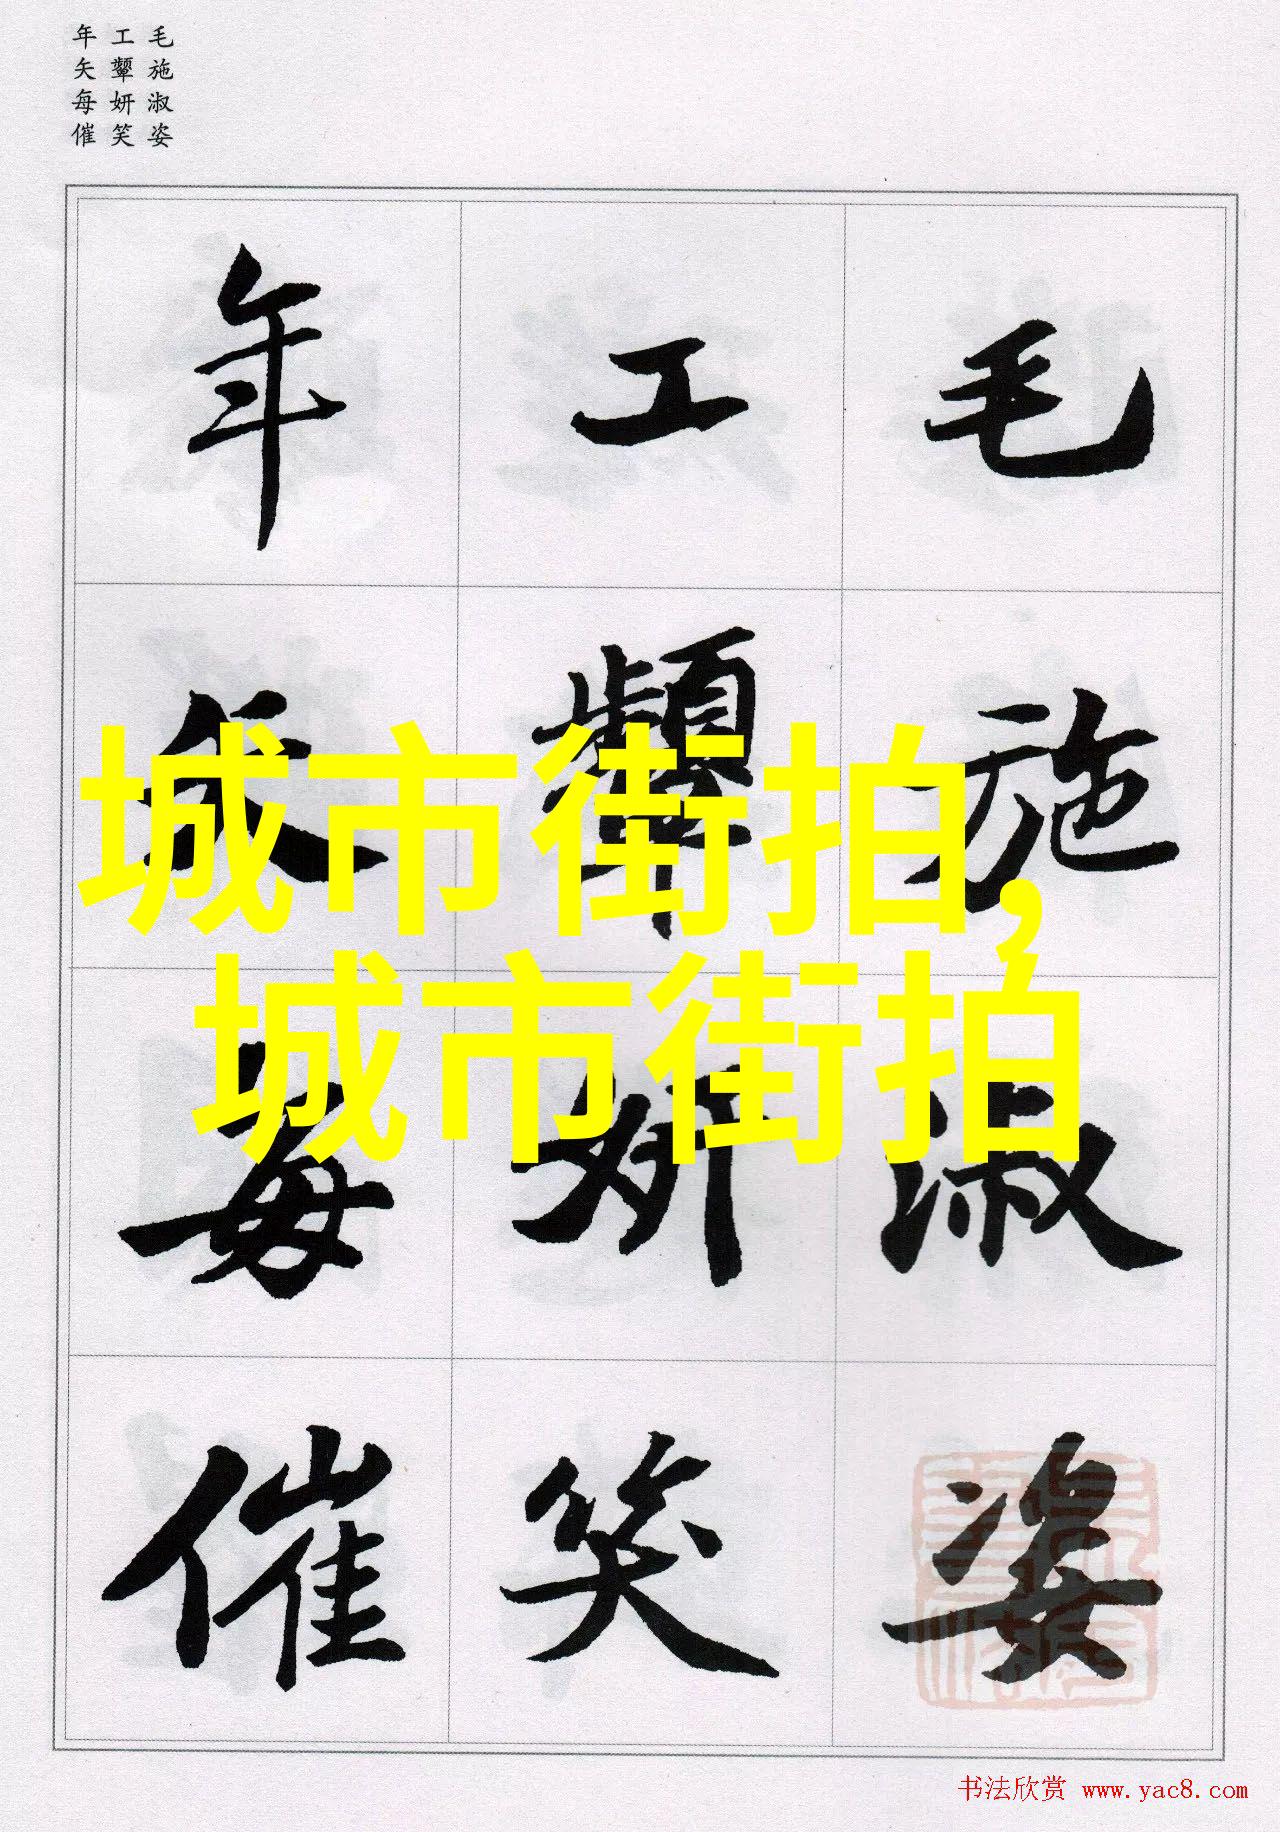 毛施淑姿
工颦妍笑
年矢每催
毛施淑姿
工颦妍笑
年矢每催
城市街拍,
城市街拍
书法欣赏 www.yac8.com